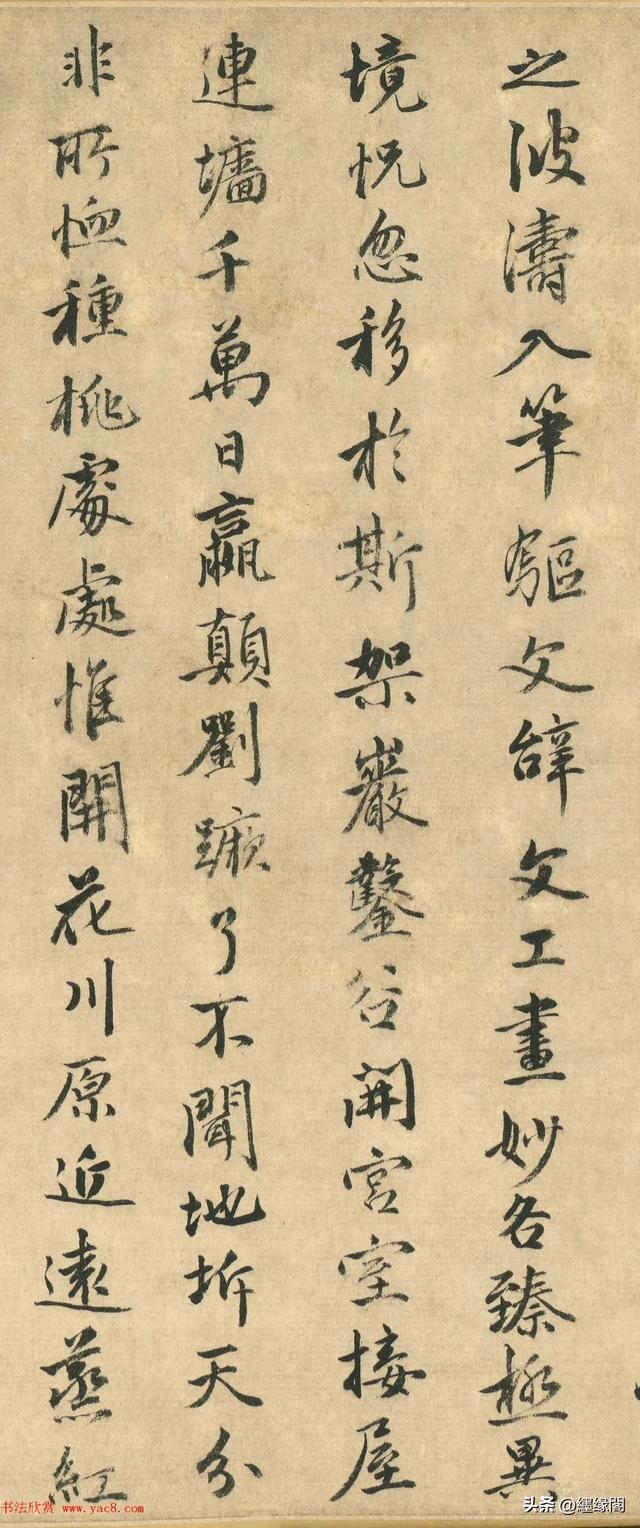 之波濤入筆驅文辭文工畫妙各臻極異
境怳忽移於斯架巖鑿谷開宮室接屋
連墻千萬日嬴顛劉蹶了不聞地坼天分
非所恤種桃處處惟開花川原近遠蒸紅
书法欣赏 www.yac8.com
头条 @纆缘閣